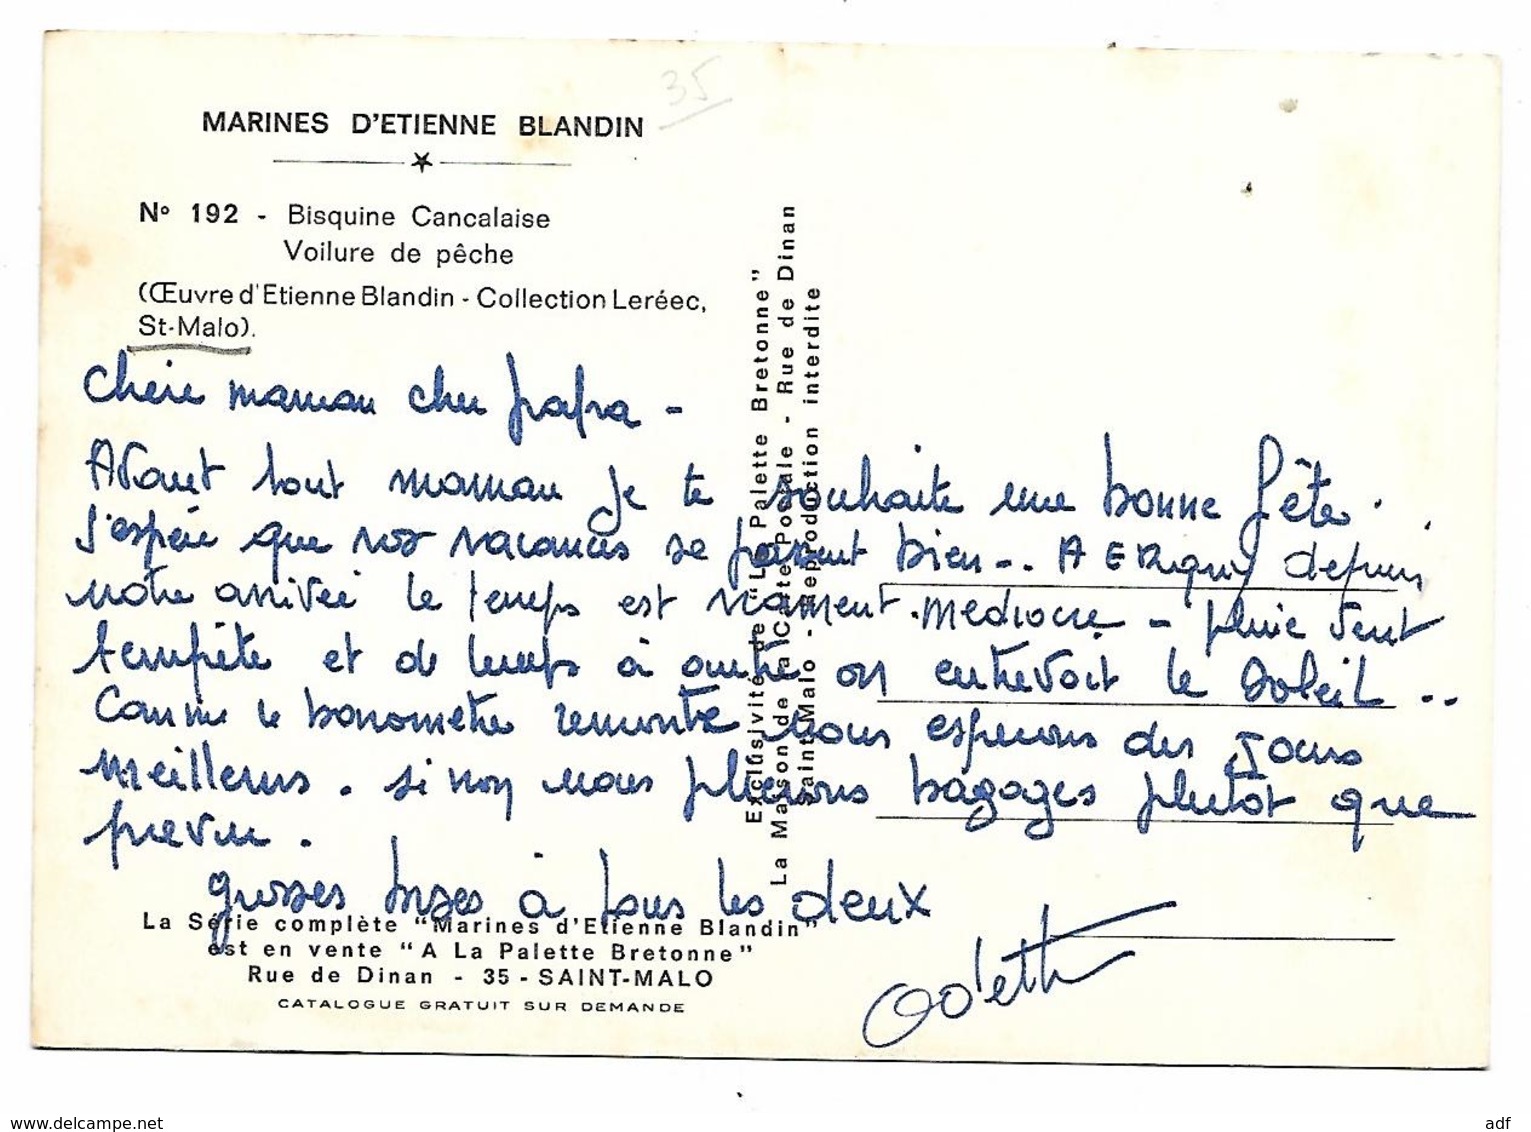 35
MARINES D'ETIENNE BLANDIN
N° 192 - Bisquine Cancalaise
Voilure de pêche
(Œuvre d'Etienne Blandin - Collection Leréec,
St-Malo).
Chère maman cher papa -
Avant tout maman je te souhaite une bonne fête.
J'espère que vos vacances se passent bien -.. A ERquy depuis
notre arrivée le temps est vraiment médiocre - pluie vent
tempête et de temps à autre on entrevoit le soleil ..
Comme le baromètre remonte nous espérons des jours
meilleurs. si non nous plierons bagages plutôt que
prévu.
grosses bises à tous les deux
Odette
Exclusivité de "La Palette Bretonne"
La Maison de la Carte Postale - Rue de Dinan
Saint-Malo - Reproduction interdite
La Série complète "Marines d'Etienne Blandin"
est en vente "A La Palette Bretonne"
Rue de Dinan - 35 - SAINT-MALO
CATALOGUE GRATUIT SUR DEMANDE
www.delcampe.net
adf